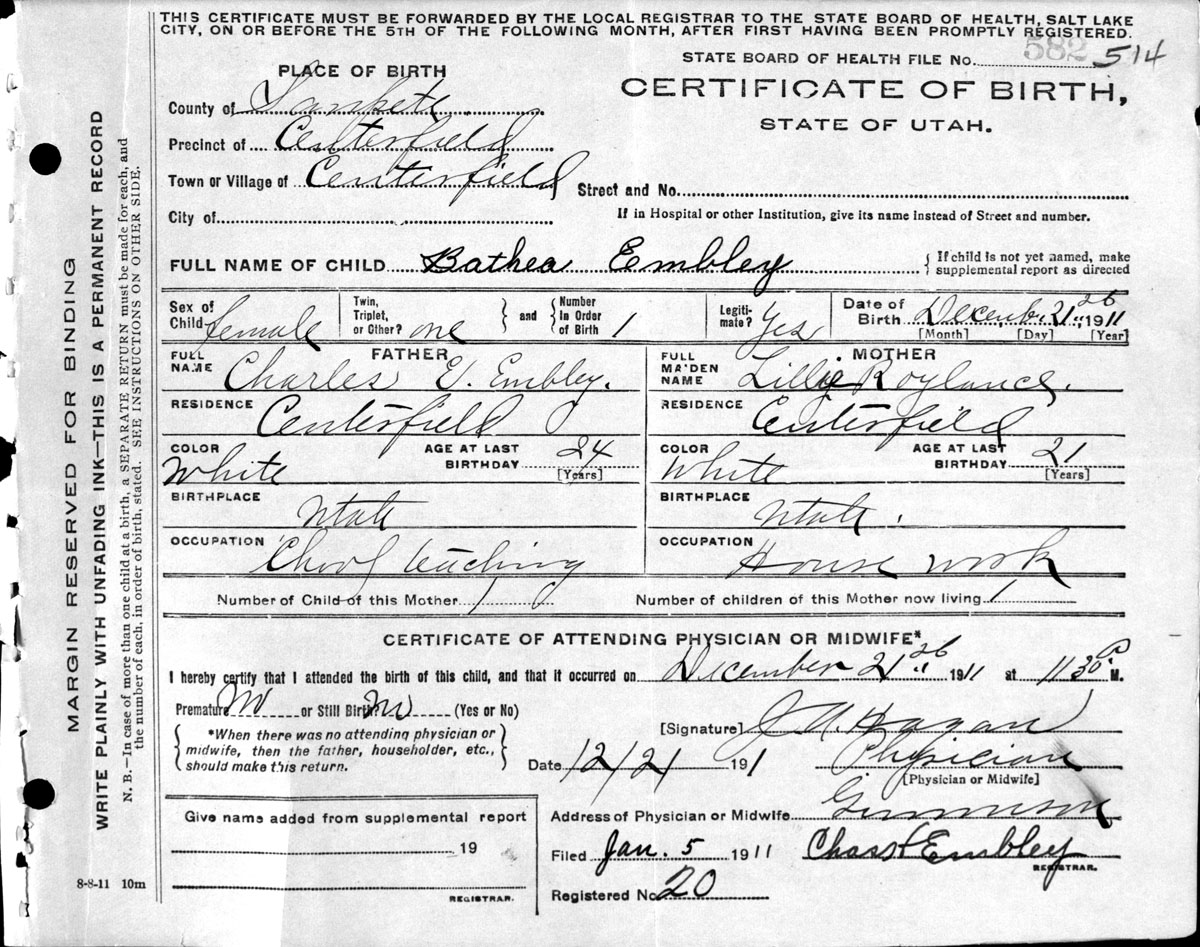 THIS CERTIFICATE MUST BE FORWARDED BY THE LOCAL REGISTRAR TO THE STATE BOARD OF HEALTH, SALT LAKE
CITY, ON OR BEFORE THE 5TH OF THE FOLLOWING MONTH, AFTER FIRST HAVING BEEN PROMPTLY REGISTERED.
STATE BOARD OF HEALTH FILE No. 582 514
CERTIFICATE OF BIRTH,
STATE OF UTAH.
PLACE OF BIRTH
County of Sanpete
Precinct of Centerfield
Town or Village of Centerfield Street and No.
City of If in Hospital or other Institution, give its name instead of Street and number.
FULL NAME OF CHILD Bathea Embley { If child is not yet named, make
supplemental report as directed
Sex of Child female Twin, Triplet, or Other? one } and { Number In Order of Birth 1 Legiti-mate? Yes Date of Birth December 21" 26 1911
[Month] [Day] [Year]
FATHER MOTHER
FULL NAME Charles E. Embley. FULL MAIDEN NAME Lillie Roylance.
RESIDENCE Centerfield RESIDENCE Centerfield
COLOR White AGE AT LAST BIRTHDAY 24 [Years] COLOR White AGE AT LAST BIRTHDAY 21 [Years]
BIRTHPLACE Utah BIRTHPLACE Utah.
OCCUPATION teaching OCCUPATION House work
Number of Child of this Mother 1 Number of children of this Mother now living 1
CERTIFICATE OF ATTENDING PHYSICIAN OR MIDWIFE*
I hereby certify that I attended the birth of this child, and that it occurred on December 21" 26 1911 at 11 30 P M.
Premature or Still Birth? (Yes or No)
{ *When there was no attending physician or
midwife, then the father, householder, etc.,
should make this return. }
[Signature] J. A. Hagan
Date 12/21 191 Physician
[Physician or Midwife]
Give name added from supplemental report
19
REGISTRAR.
Address of Physician or Midwife Gunnison
Filed Jan. 5 1911 Chas Embley
REGISTRAR.
Registered No. 20
8-8-11 10m
MARGIN RESERVED FOR BINDING
WRITE PLAINLY WITH UNFADING INK—THIS IS A PERMANENT RECORD
N. B.—In case of more than one child at a birth, a SEPARATE RETURN must be made for each, and
the number of each, in order of birth, stated. SEE INSTRUCTIONS ON OTHER SIDE.